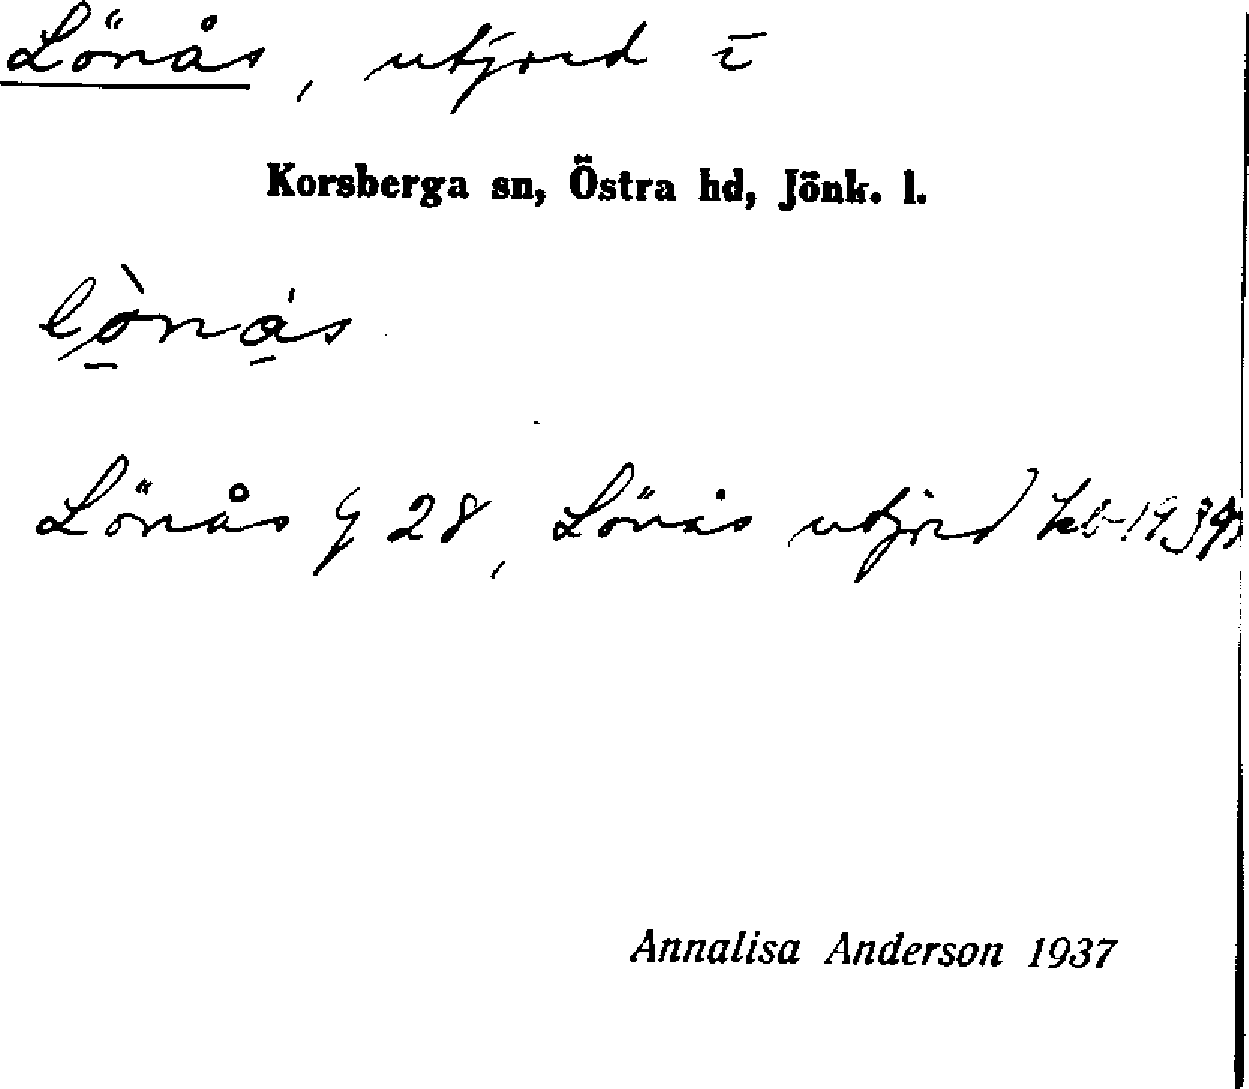 Lönås, utjord i
Korsberga sn, Östra hd, Jönk. l.
Lönås G 28, Lönås utjord
Annalisa Anderson 1937